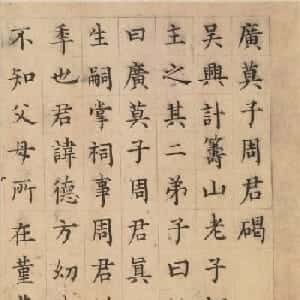 廣莫子周君碣
吳興計籌山老子
主之其二弟子曰
曰廣莫子周君真
生嗣掌祠事周君
年也君諱德方幼
不知父母所在董